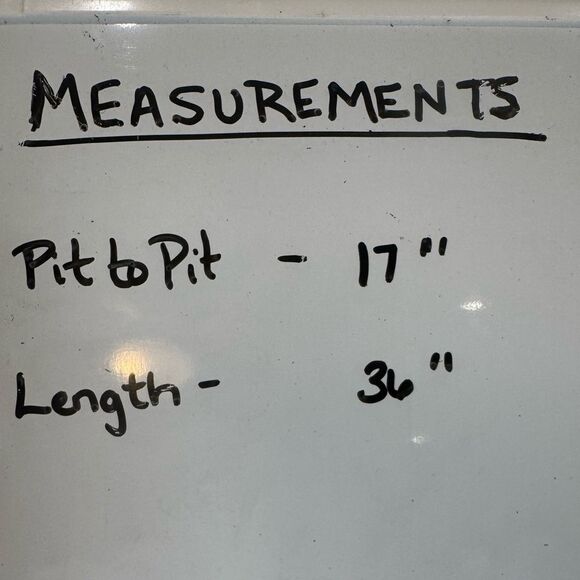 MEASUREMENTS
Pit to Pit - 17"
Length - 36"